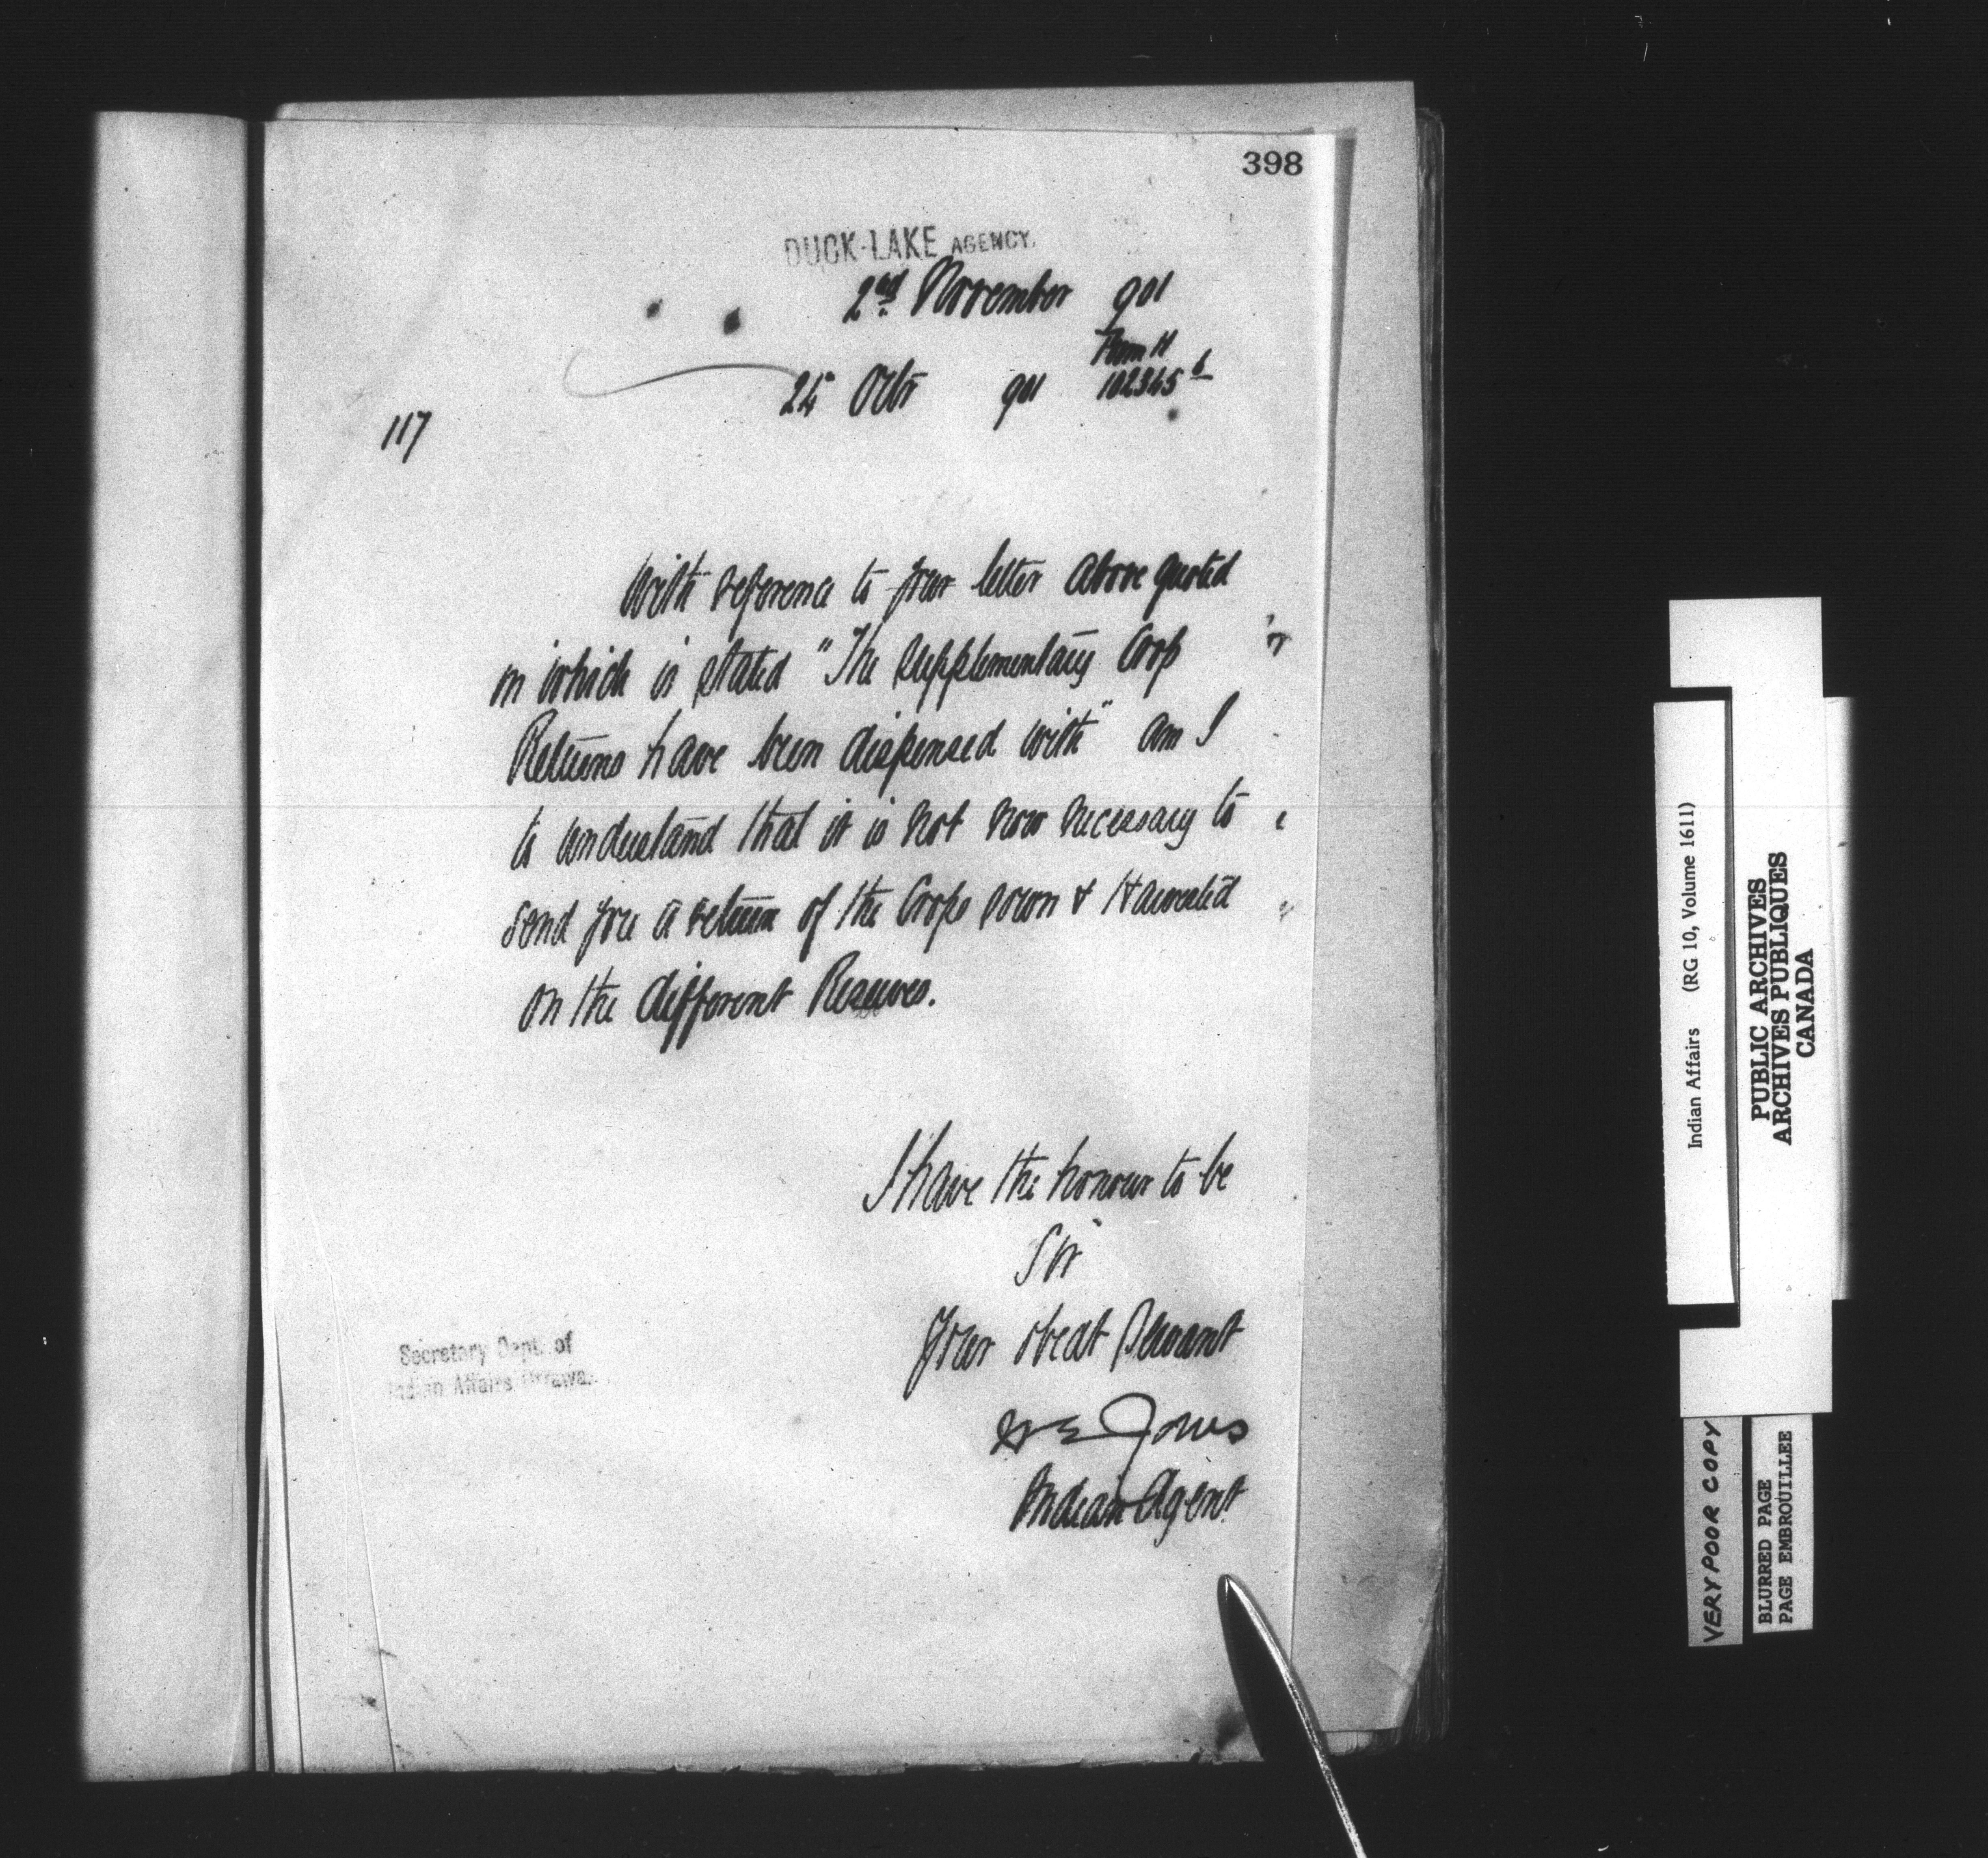 398
DUCK-LAKE AGENCY.
2nd November 901
25 Octr 901 102365
117
With reference to your letter above quoted
in which is stated "The Supplementary Crop
Returns have been dispensed with" am I
to understand that it is not now necessary to
send you a return of the Crops sown & Harvested
on the different Reserves.
I have the honour to be
Sir
Your obedt Servant
Jones
Indian Agent
Secretary Dept. of
Indian Affairs Ottawa.
Indian Affairs (RG 10, Volume 1611)
PUBLIC ARCHIVES
ARCHIVES PUBLIQUES
CANADA
VERY POOR COPY
BLURRED PAGE
PAGE EMBROUILLEE